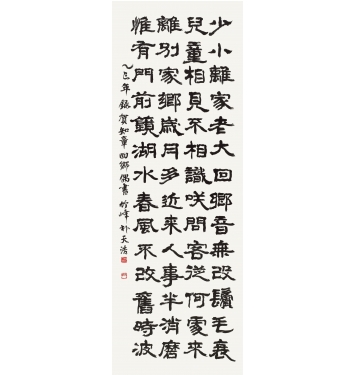 少小離家老大回鄉音無改鬢毛衰
兒童相見不相識咲問客從何處來
離別家鄉歲月多近來人事半消磨
惟有門前鏡湖水春風不改舊時波
乙巳年錄賀知章回鄉偶書